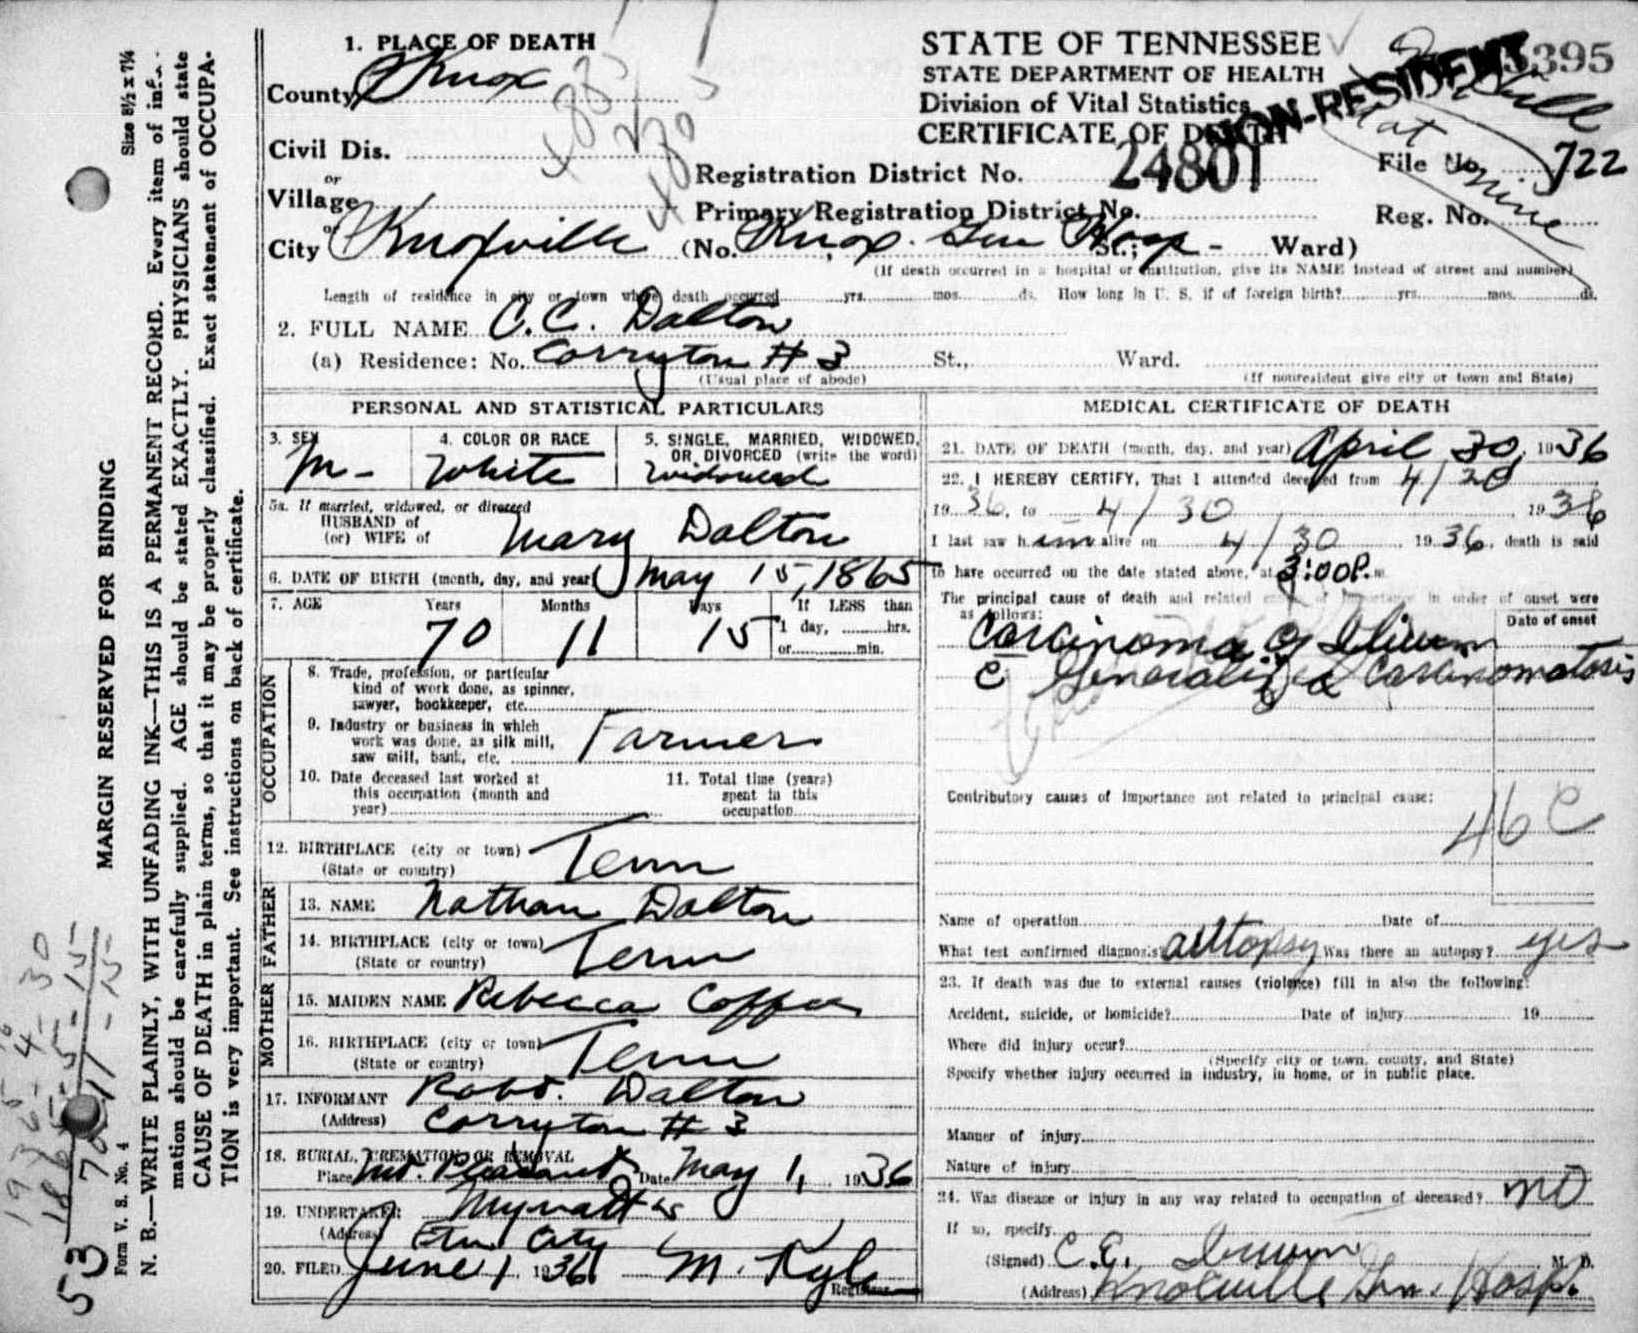 1. PLACE OF DEATH
County Knox
Civil Dis.
or
Village
or
City Knoxville (No. Knox. Gen Hosp St.; - Ward)
(If death occurred in a hospital or institution, give its NAME instead of street and number)
STATE OF TENNESSEE
STATE DEPARTMENT OF HEALTH
Division of Vital Statistics
CERTIFICATE OF DEATH
NON-RESIDENT
3395
Registration District No. 24801
File No. 722
Primary Registration District No.
Reg. No.
Length of residence in city or town where death occurred yrs. mos. ds. How long in U. S. if of foreign birth? yrs. mos. ds.
2. FULL NAME C. C. Dalton
(a) Residence: No. Corryton # 3 St., Ward.
(Usual place of abode) (If nonresident give city or town and State)
PERSONAL AND STATISTICAL PARTICULARS
3. SEX M-
4. COLOR OR RACE White
5. SINGLE, MARRIED, WIDOWED, OR DIVORCED (write the word) Widowed
5a. If married, widowed, or divorced
HUSBAND of
(or) WIFE of Mary Dalton
6. DATE OF BIRTH (month, day, and year) May 15, 1865
7. AGE Years Months Days If LESS than
70 11 15 1 day, hrs.
or min.
OCCUPATION
8. Trade, profession, or particular
kind of work done, as spinner,
sawyer, bookkeeper, etc.
9. Industry or business in which
work was done, as silk mill,
saw mill, bank, etc. Farmer
10. Date deceased last worked at
this occupation (month and
year)
11. Total time (years)
spent in this
occupation
12. BIRTHPLACE (city or town) Tenn
(State or country)
FATHER
13. NAME Nathan Dalton
14. BIRTHPLACE (city or town) Tenn
(State or country)
MOTHER
15. MAIDEN NAME Rebecca
16. BIRTHPLACE (city or town) Tenn
(State or country)
17. INFORMANT Robt. Dalton
(Address) Corryton # 3
18. BURIAL, CREMATION, OR REMOVAL
Place Mt. Pleasant Date May 1, 1936
19. UNDERTAKER Mynatt's
(Address) City
20. FILED June 1 1936 M. Kyle
Registrar
MEDICAL CERTIFICATE OF DEATH
21. DATE OF DEATH (month, day, and year) April 30, 1936
22. I HEREBY CERTIFY, That I attended deceased from 4/20
1936, to 4/30, 1936
I last saw him alive on 4/30, 1936, death is said
to have occurred on the date stated above, at 3:00 P. m.
The principal cause of death and related causes of importance in order of onset were
as follows: Date of onset
Carcinoma of Ilium
c Generalized Carcinomatosis
Contributory causes of importance not related to principal cause:
46 C
Name of operation Date of
What test confirmed diagnosis? autopsy Was there an autopsy? yes
23. If death was due to external causes (violence) fill in also the following:
Accident, suicide, or homicide? Date of injury 19
Where did injury occur?
(Specify city or town, county, and State)
Specify whether injury occurred in industry, in home, or in public place.
Manner of injury
Nature of injury
24. Was disease or injury in any way related to occupation of deceased? no
If so, specify
(Signed) M. D.
(Address) Knoxville Gen. Hosp.
Size 8½ x 7¼
MARGIN RESERVED FOR BINDING
N. B.—WRITE PLAINLY, WITH UNFADING INK—THIS IS A PERMANENT RECORD. Every item of infor-
mation should be carefully supplied. AGE should be stated EXACTLY. PHYSICIANS should state
CAUSE OF DEATH in plain terms, so that it may be properly classified. Exact statement of OCCUPA-
TION is very important. See instructions on back of certificate.
Form V. S. No. 4
1936-4-30
1865-5-15
70-11-15
53